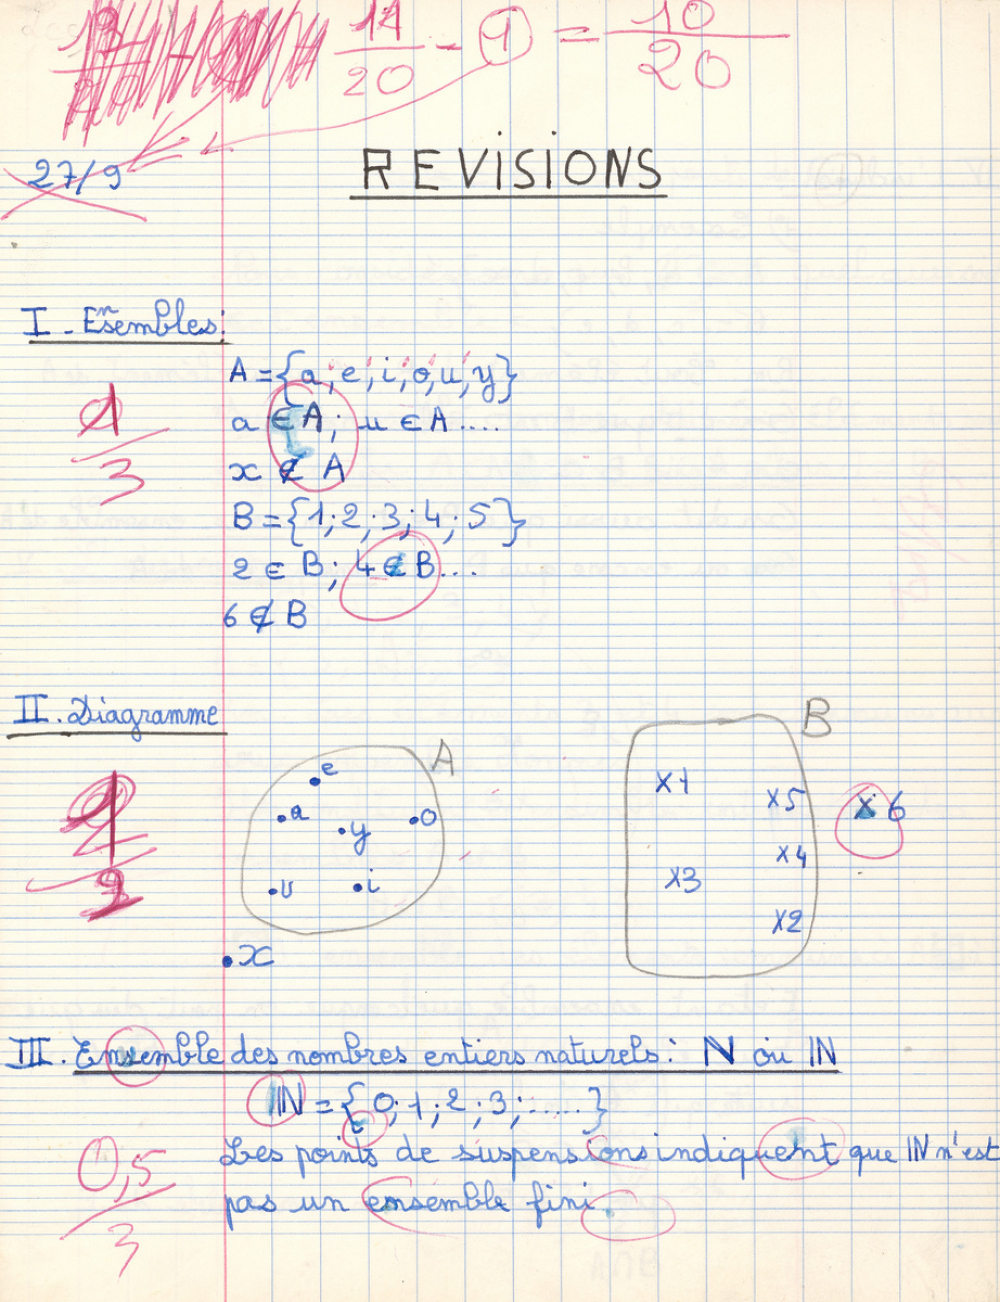 11/20 - 1 = 10/20
27/9
REVISIONS
I - Ensembles:
A = {a; e; i; o; u; y}
a ∈ A; u ∈ A....
1/3
x ∉ A
B = {1; 2; 3; 4; 5}
2 ∈ B; 4 ∉ B...
6 ∉ B
II. Diagramme
A
B
e
x1
x5
x 6
a
y
o
x4
u
i
x3
x2
x
III. Ensemble des nombres entiers naturels: N ou IN
IN = {0; 1; 2; 3; .....}
0,5/3
Les points de suspensions indiquent que IN n'est
pas un ensemble fini.